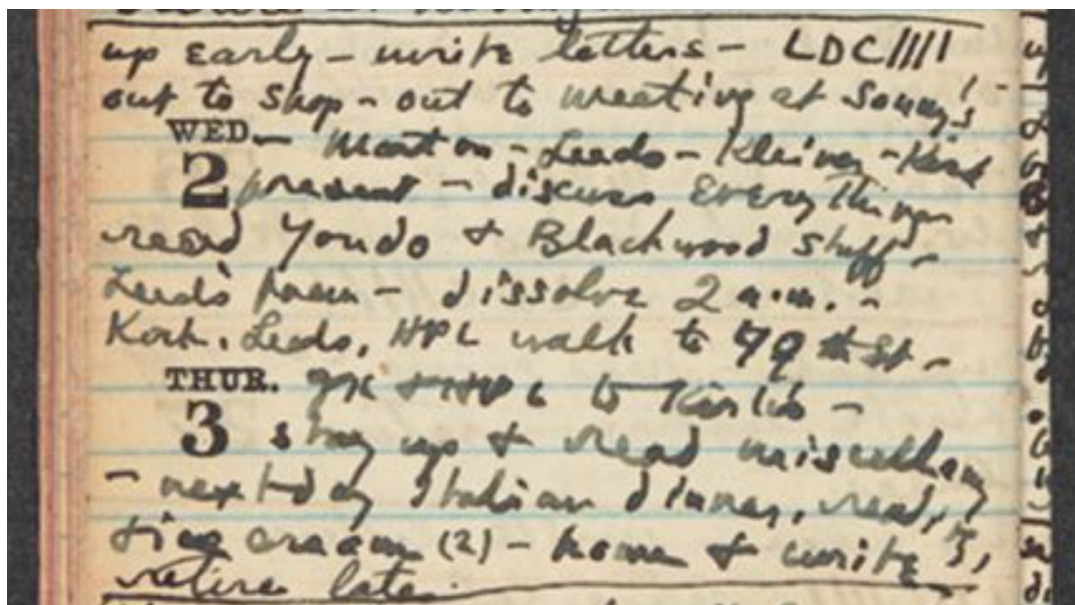 up early – write letters – LDC////
out to shop – out to meeting at Sonny's –
WED. – Morton – Leeds – Kleiner – Kirk
2 present – discuss everything
read Yondo & Blackwood stuff –
Leeds poem – dissolve 2 a.m. –
Kirk, Leeds, HPL walk to 79th St –
THUR. GK & HPL to Kirk's –
3 stay up & read miscellany
– next day Italian dinner, read,
& ice cream (2) – home & write,
retire late.